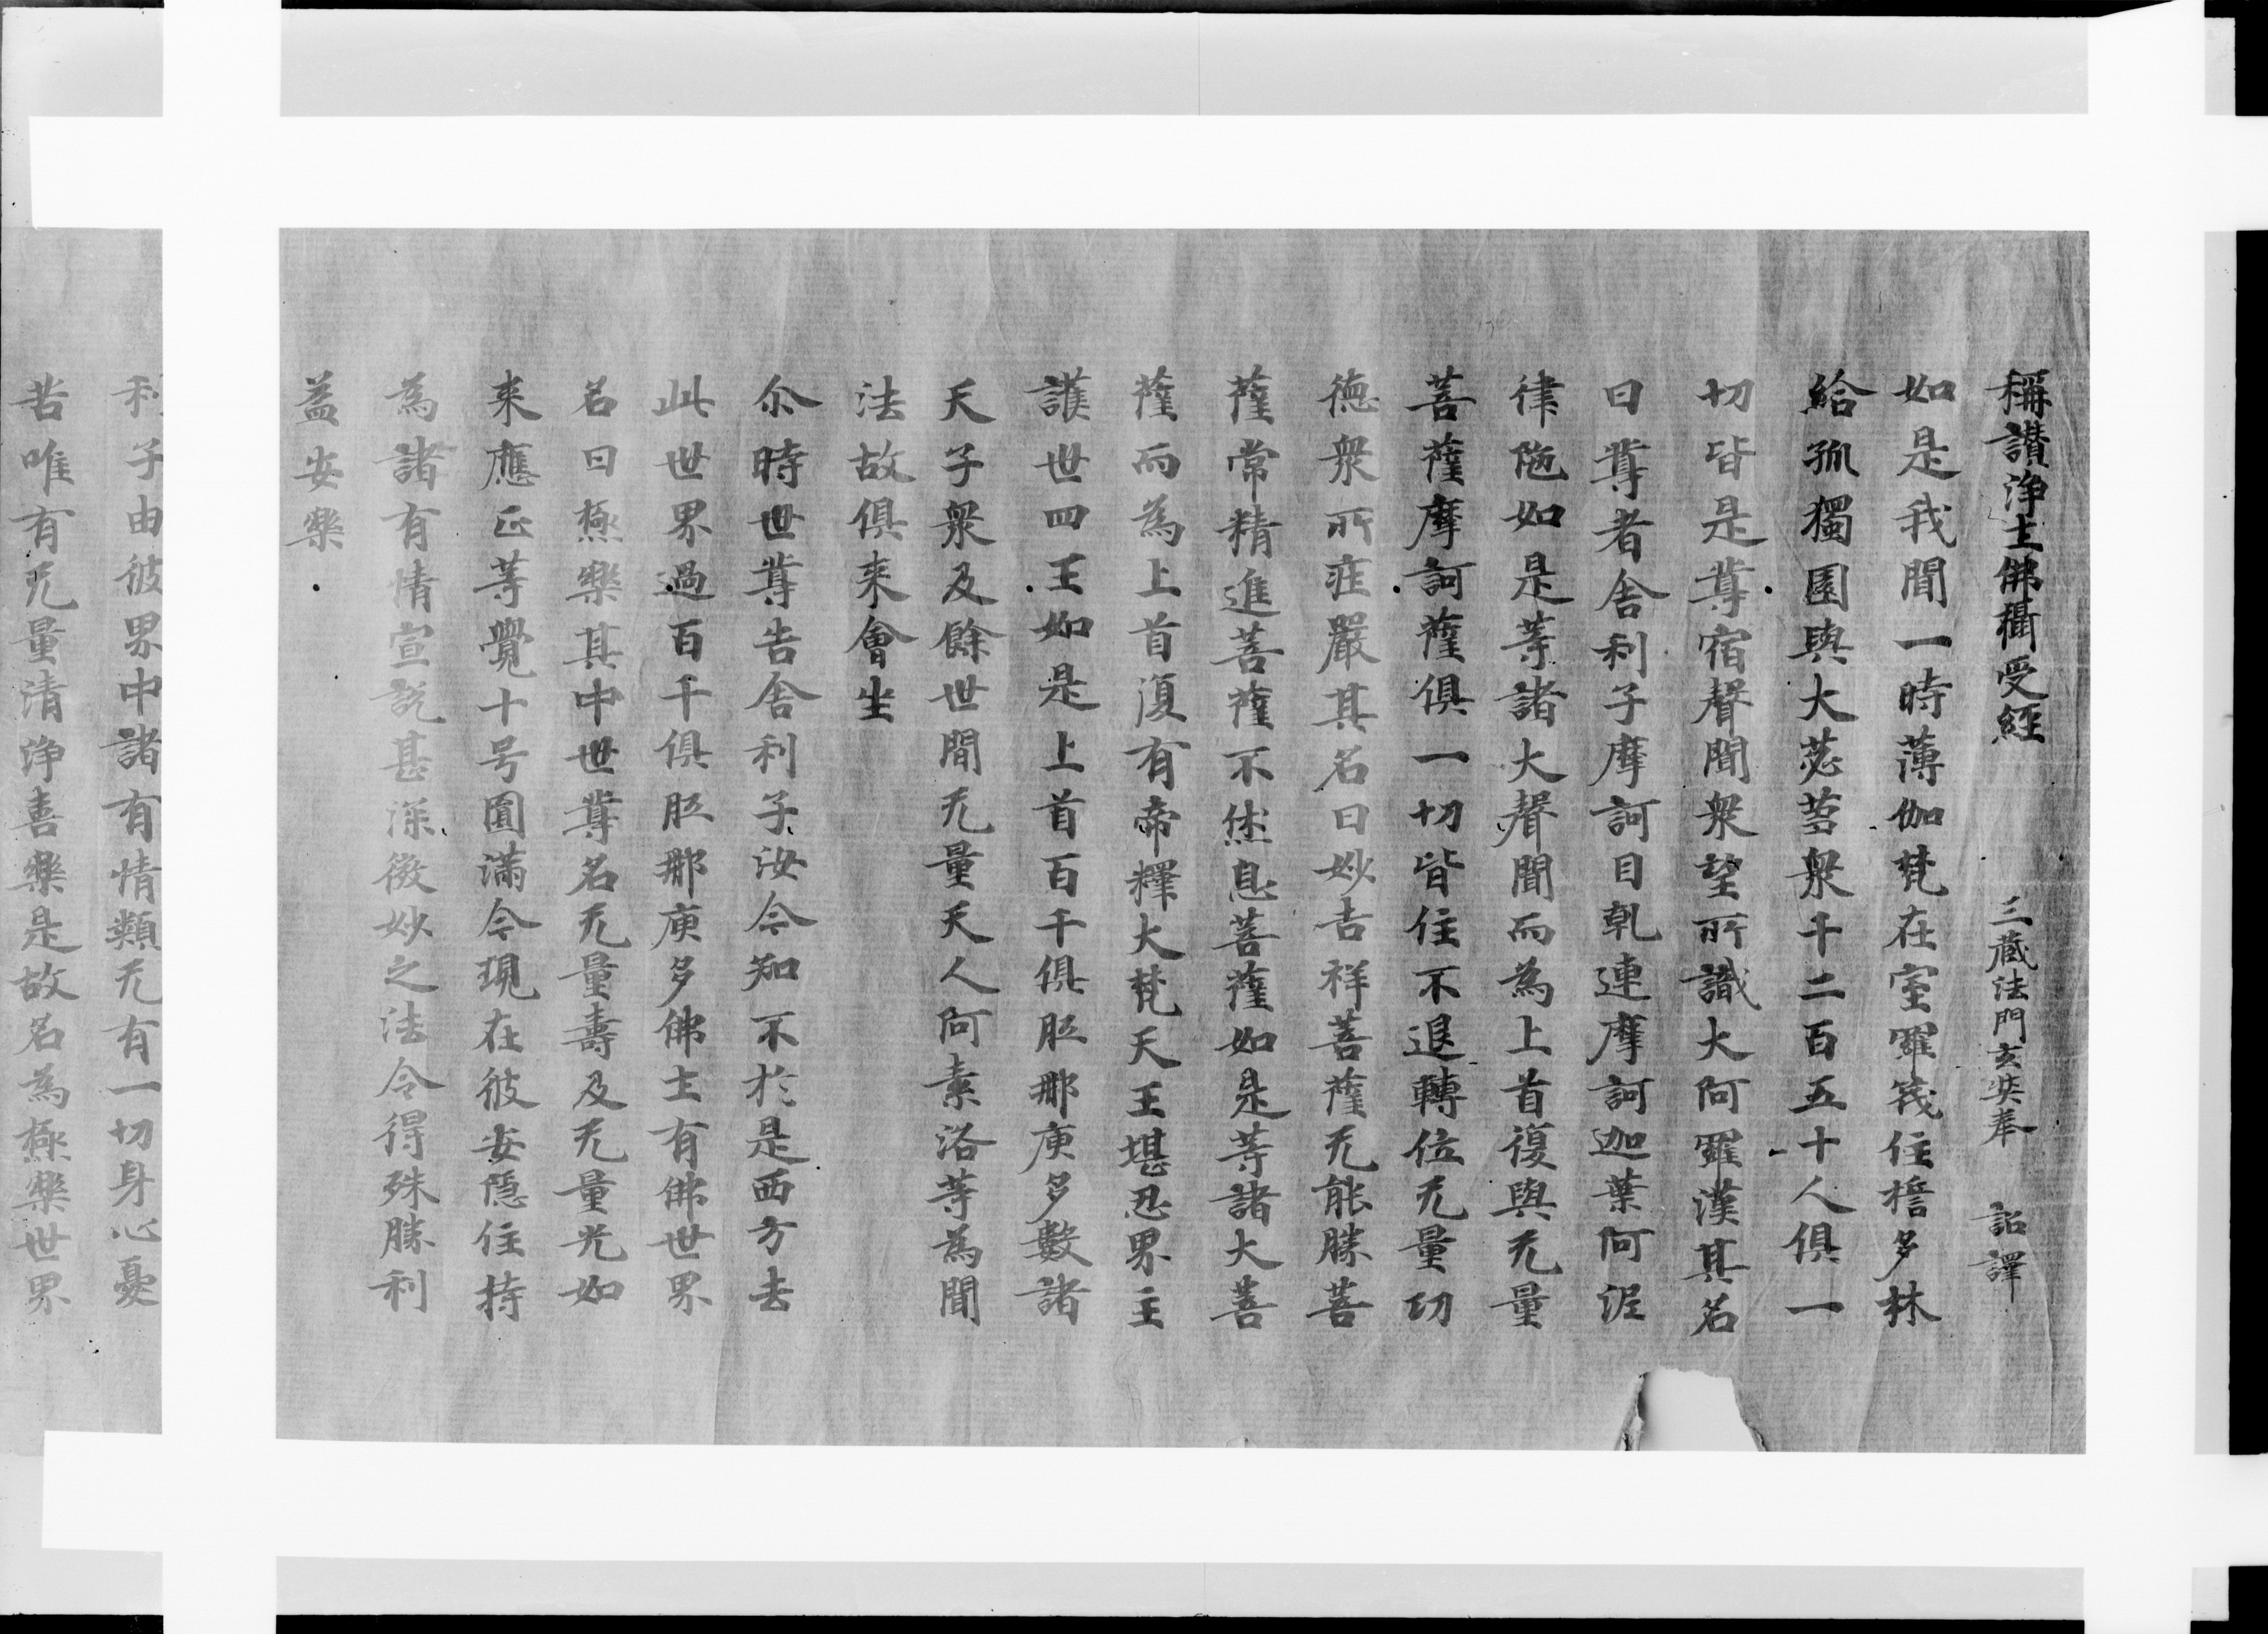 稱讃淨土佛攝受經　三藏法門玄奘奉　詔譯
如是我聞一時薄伽梵在室羅筏住檐多林
給孤獨園與大苾芻衆千二百五十人俱一
切皆是尊宿聲聞衆望所識大阿羅漢其名
曰尊者舍利子摩訶目乹連摩訶迦葉阿泥
律陁如是等諸大聲聞而為上首復與无量
菩薩摩訶薩俱一切皆住不退轉位无量功
德衆所莊嚴其名曰妙吉祥菩薩无能勝菩
薩常精進菩薩不休息菩薩如是等諸大菩
薩而為上首復有帝釋大梵天王堪忍界主
護世四王如是上首百千俱胝那庾多數諸
天子衆及餘世間无量天人阿素洛等為聞
法故俱来會坐
尒時世尊告舍利子汝今知不於是西方去
此世界過百千俱胝那庾多佛土有佛世界
名曰極樂其中世尊名无量壽及无量光如
来應正等覺十号圓滿今現在彼安隱住持
為諸有情宣說甚深微妙之法令得殊勝利
益安樂
利子由彼界中諸有情類无有一切身心憂
苦唯有无量清淨喜樂是故名為極樂世界